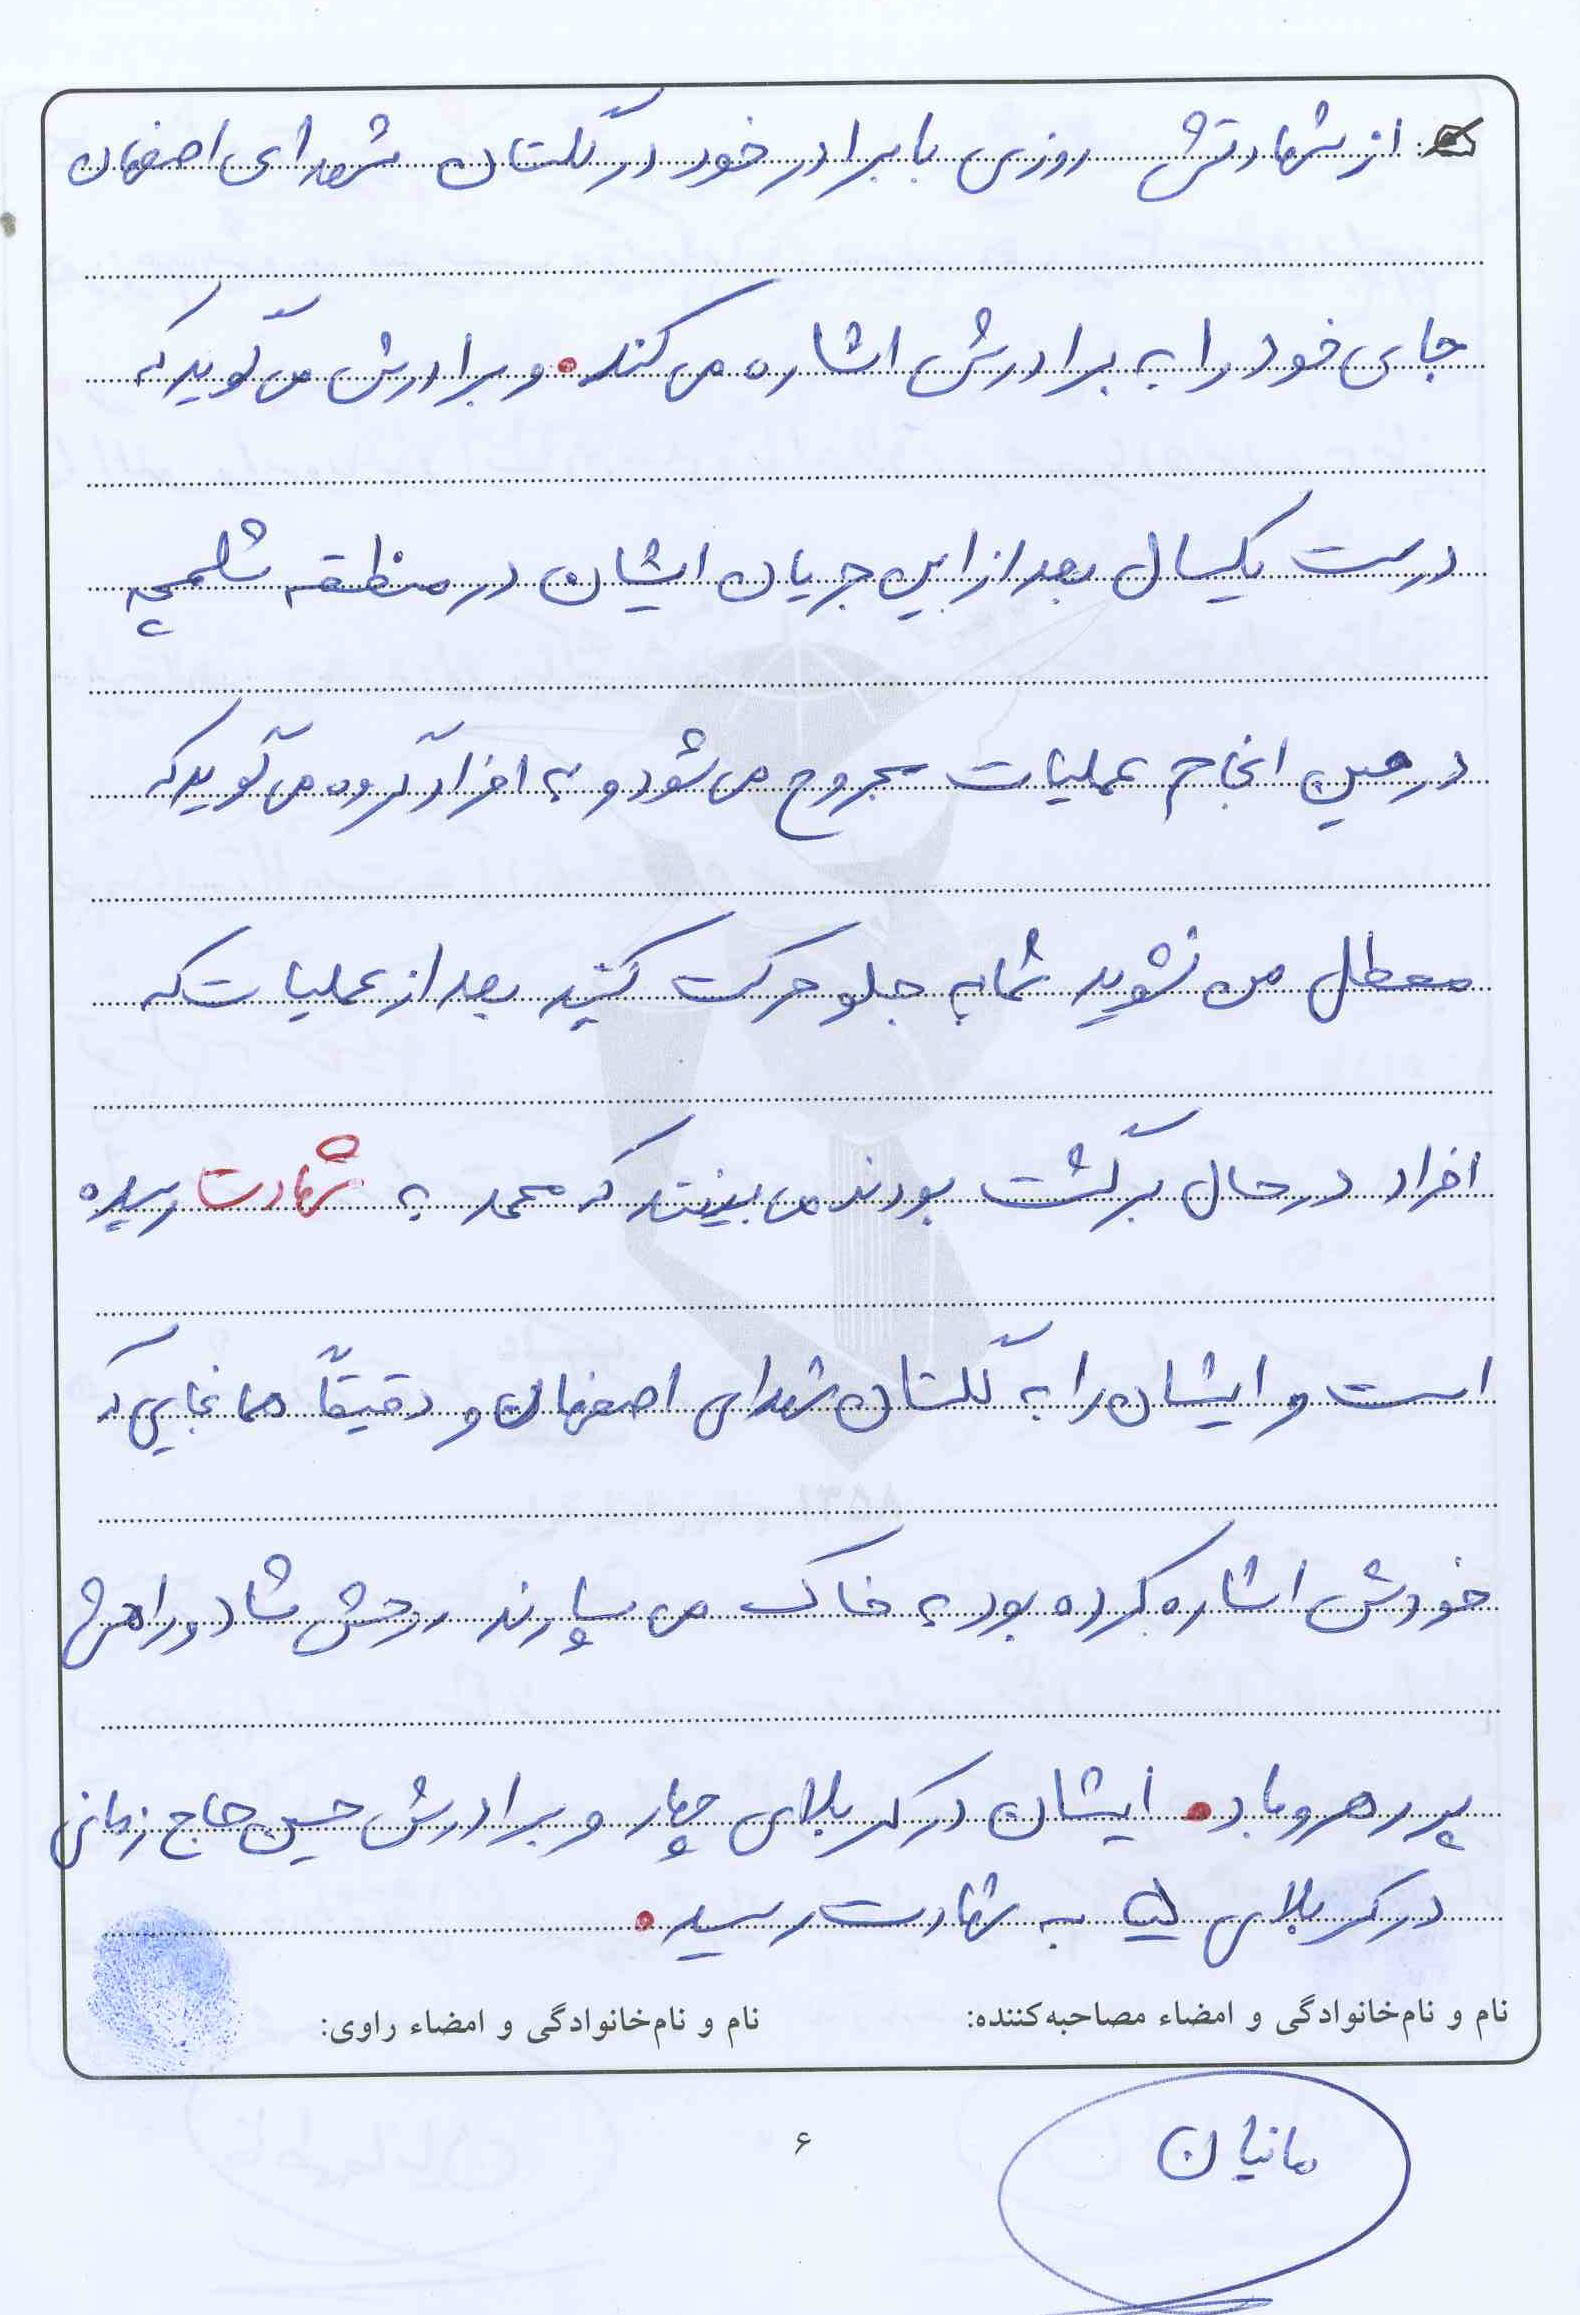 از شهادتش روزی با برادر خود در گلستان شهدای اصفهان
جای خود را به برادرش اشاره می کند. و برادرش می گوید که
درست یکسال بعد از این جریان ایشان در منطقه شلمچه
در حین انجام عملیات مجروح می شود و به افراد گروه می گوید که
معطل من نشوید شما به جلو حرکت کنید بعد از عملیات که
افراد در حال برگشت بودند می بینند که محمد به شهادت رسیده
است و ایشان را به گلستان شهدای اصفهان و دقیقاً همانجایی که
خودش اشاره کرده بود به خاک می سپارند روحش شاد و راهش
پر رهرو باد. ایشان در کربلای چهار و برادرش حسین حاج زمانی
در کربلای ۵ به شهادت رسید.
نام و نام‌خانوادگی و امضاء مصاحبه‌کننده:
نام و نام‌خانوادگی و امضاء راوی:
مانیان
۶